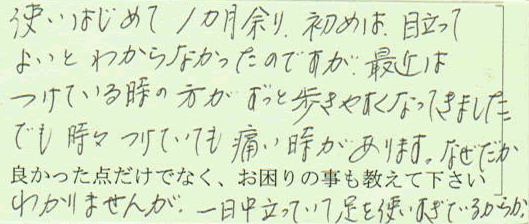 使いはじめて1カ月余り、初めは、目立って
よいと わからなかったのですが、最近は
つけている時の方が ずっと歩きやすくなってきました
でも 時々 つけていても 痛い時があります。なぜだか
良かった点だけでなく、お困りの事も教えて下さい
わかりませんが 一日中立っていて足を使いすぎているからか、